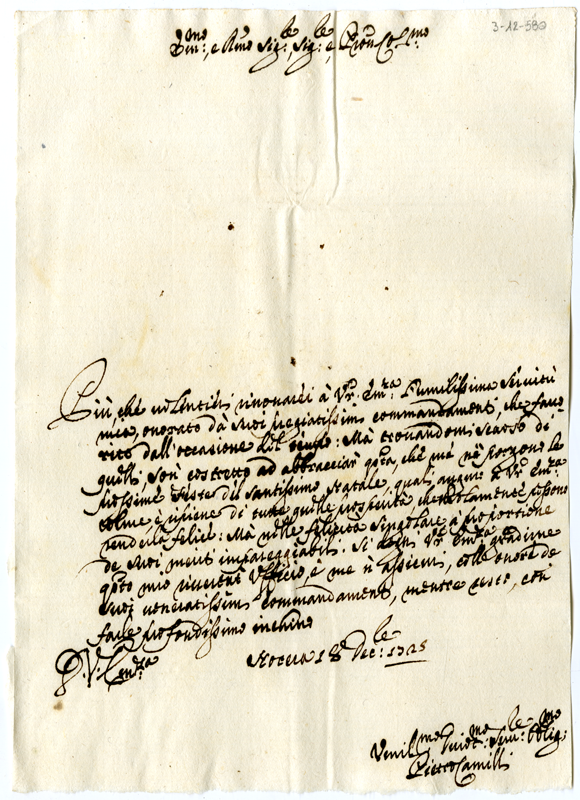 3-12-580
Em:mo, e Rmo Sig:le, Sig:le, e Pron Col:mo
Più, che volentieri rinovarei à Vr̄. Em:za l'umilissima Servitù
mia, onorato dà Suoi pregiatissimi commandamenti, che favo
rito dall'occasione del : Mà trovandomi scarso di
quelli son costretto ad abbracciar qsta, che mà nè porgono le
prossime Feste del Santissimo Natale, quali auguro à Vr̄. Em:za
colme, è ripiene di tutte quelle prosperità che possono
renderla felice: Mà nelle felicità singolare, à proportione
de Suoi meriti impareggiabili. Si degni Vr̄. Em:za gradirne
qsto mio riverente Ufficio, è me n'assicuri, coll'onore de
Suoi veneratissimi commandamenti, mentre resto, con
farle profondissimo inchino
D. V. Em:za
Nocera 18 Dec:le 1728
Umil:mo Devot:mo Serv:le Oblig:mo
Pietro Camilli